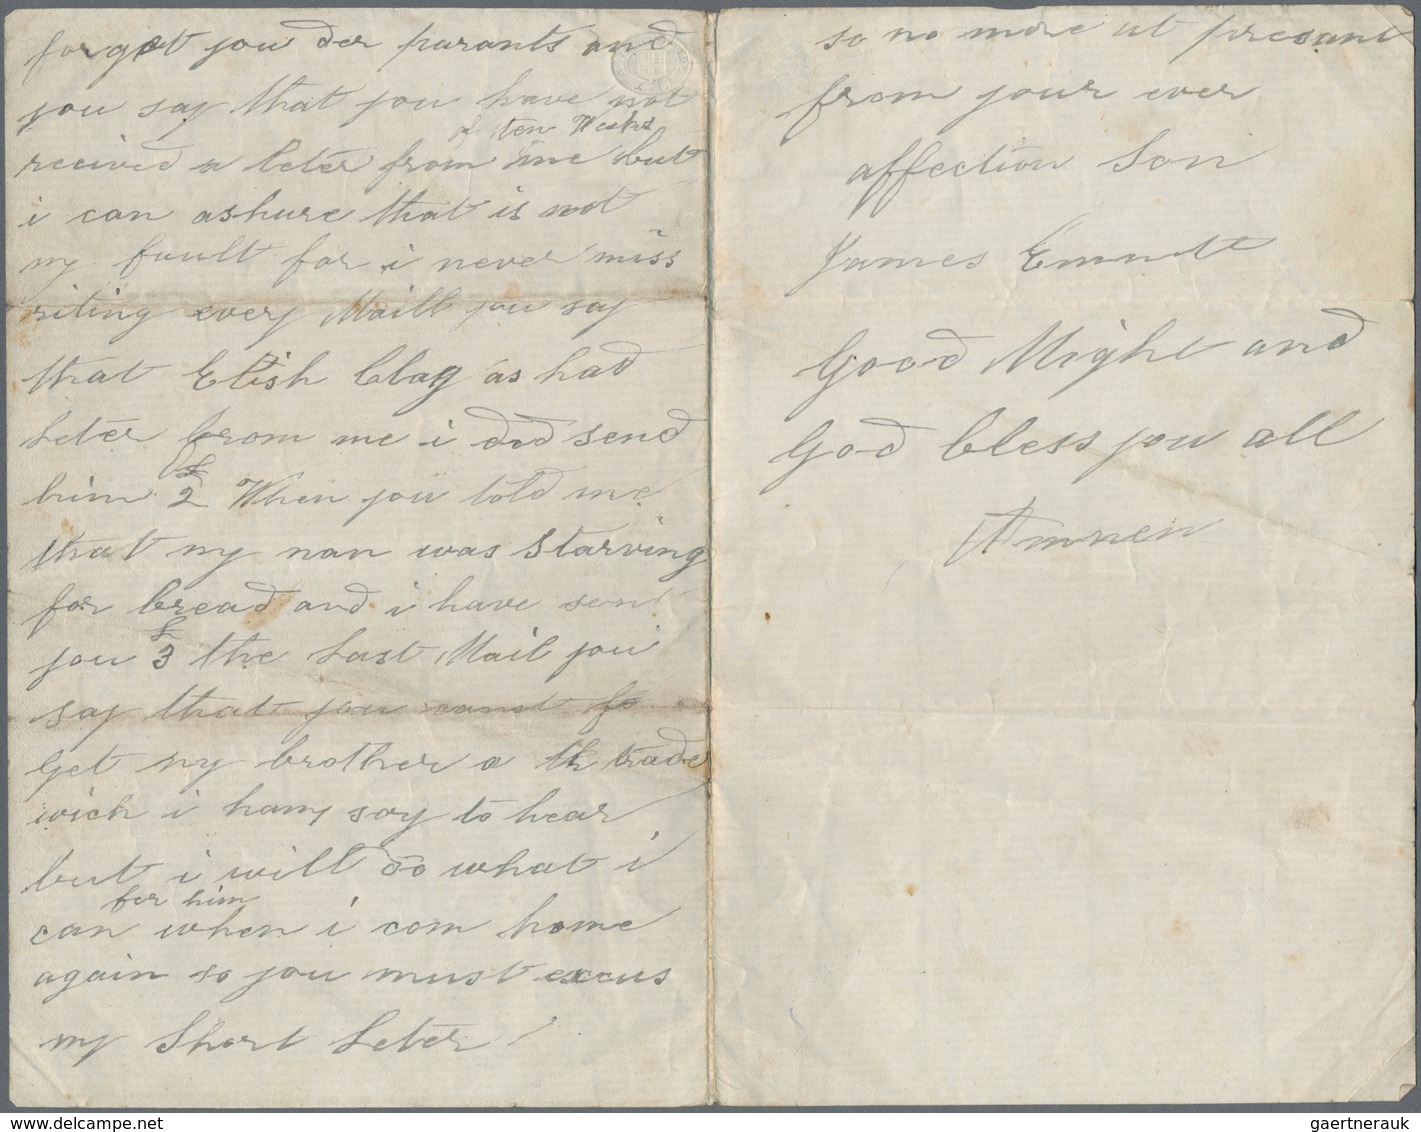 forget you der parants and
you say that you have not
of ten Weeks
recived a leter from me but
i can ashure that is not
my fault for i never miss
riting every Maill you say
that Elish Clag as had
leter from me i did send
him £2 When you told me
that my nan was Starving
for bread and i have sent
you £3 the Last Mail you
say that you canot fo
get my brother a th trade
wich i ham soy to hear
but i will do what i
for him
can when i com home
again so you must excus
my Short Leter
so no more at presant
from your ever
affection Son
James Emmet
Good Night and
God bless you all
Ammen
gaertnerauk
www.delcampe.net